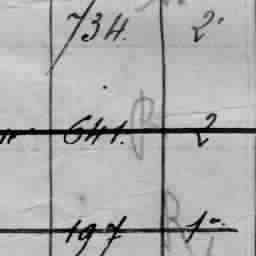 734. 2.
641. R 2
197 R 1"